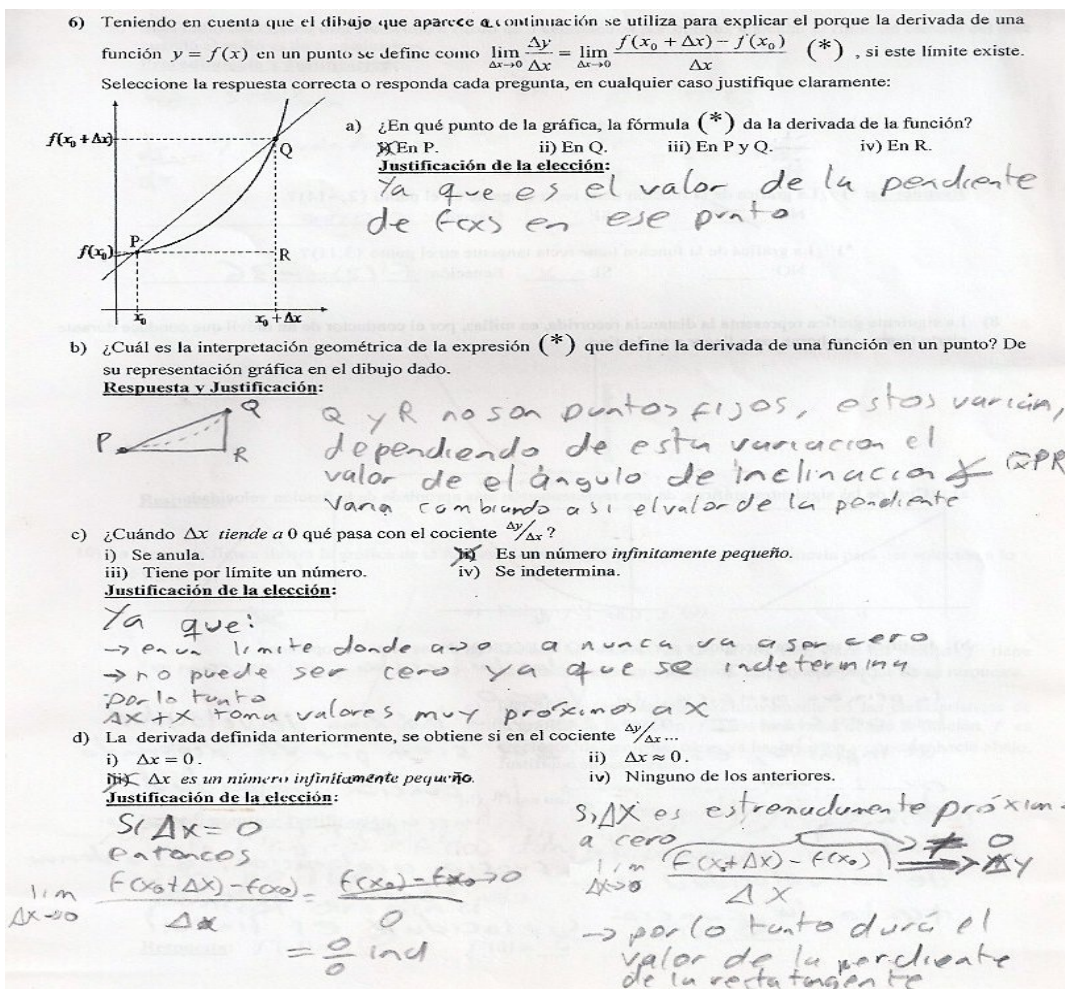 6) Teniendo en cuenta que el dibujo que aparece a continuación se utiliza para explicar el porque la derivada de una
función y = f(x) en un punto se define como lim Δx→0 Δy/Δx = lim Δx→0 (f(x₀ + Δx) − f(x₀))/Δx (*) , si este límite existe.
Seleccione la respuesta correcta o responda cada pregunta, en cualquier caso justifique claramente:
f(x₀ + Δx)
Q
P
f(x₀)
R
x₀
x₀ + Δx
a) ¿En qué punto de la gráfica, la fórmula (*) da la derivada de la función?
i) En P. ii) En Q. iii) En P y Q. iv) En R.
Justificación de la elección:
Ya que es el valor de la pendiente
de f(x) en ese punto
b) ¿Cuál es la interpretación geométrica de la expresión (*) que define la derivada de una función en un punto? De
su representación gráfica en el dibujo dado.
Respuesta y Justificación:
P Q R
Q y R no son puntos fijos, estos varian,
dependiendo de esta variacion el
valor de el ángulo de inclinacion ∡ QPR
varia cambiando asi el valor de la pendiente
c) ¿Cuándo Δx tiende a 0 qué pasa con el cociente Δy/Δx?
i) Se anula. ii) Es un número infinitamente pequeño.
iii) Tiene por límite un número. iv) Se indetermina.
Justificación de la elección:
Ya que:
→ en un limite donde a→o a nunca va a ser cero
→ no puede ser cero ya que se indetermina
por lo tanto
Δx + x toma valores muy próximos a x
d) La derivada definida anteriormente, se obtiene si en el cociente Δy/Δx ...
i) Δx = 0. ii) Δx ≈ 0.
iii) Δx es un número infinitamente pequeño. iv) Ninguno de los anteriores.
Justificación de la elección:
Si Δx = 0
entonces
lim Δx→0 (f(x₀+Δx) − f(x₀))/Δx = (f(x₀) − f(x₀))/0 → 0
= 0/0 ind
Si Δx es estremadamente próxim
a cero
lim Δx→0 (f(x₀+Δx) − f(x₀))/Δx ≠ 0 → Δy
→ por lo tanto dará el
valor de la pendiente
de la recta tangente